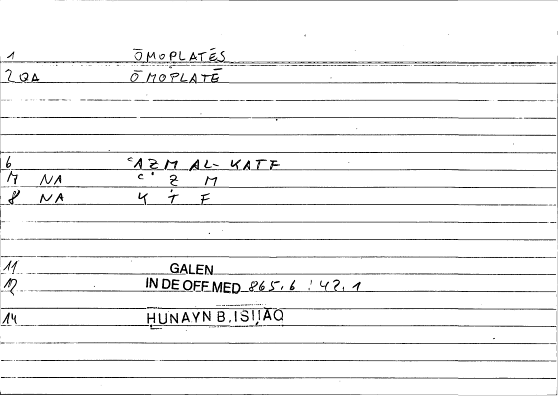 1 ŌMOPLATĒS
2 QA ŌMOPLATĒ
6 ʿAẒM AL-KATF
7 NA ʿ Ẓ M
8 NA K T F
11 GALEN
12 IN DE OFF.MED 865.6 : 42.1
14 ḤUNAYN B. ISḤĀQ